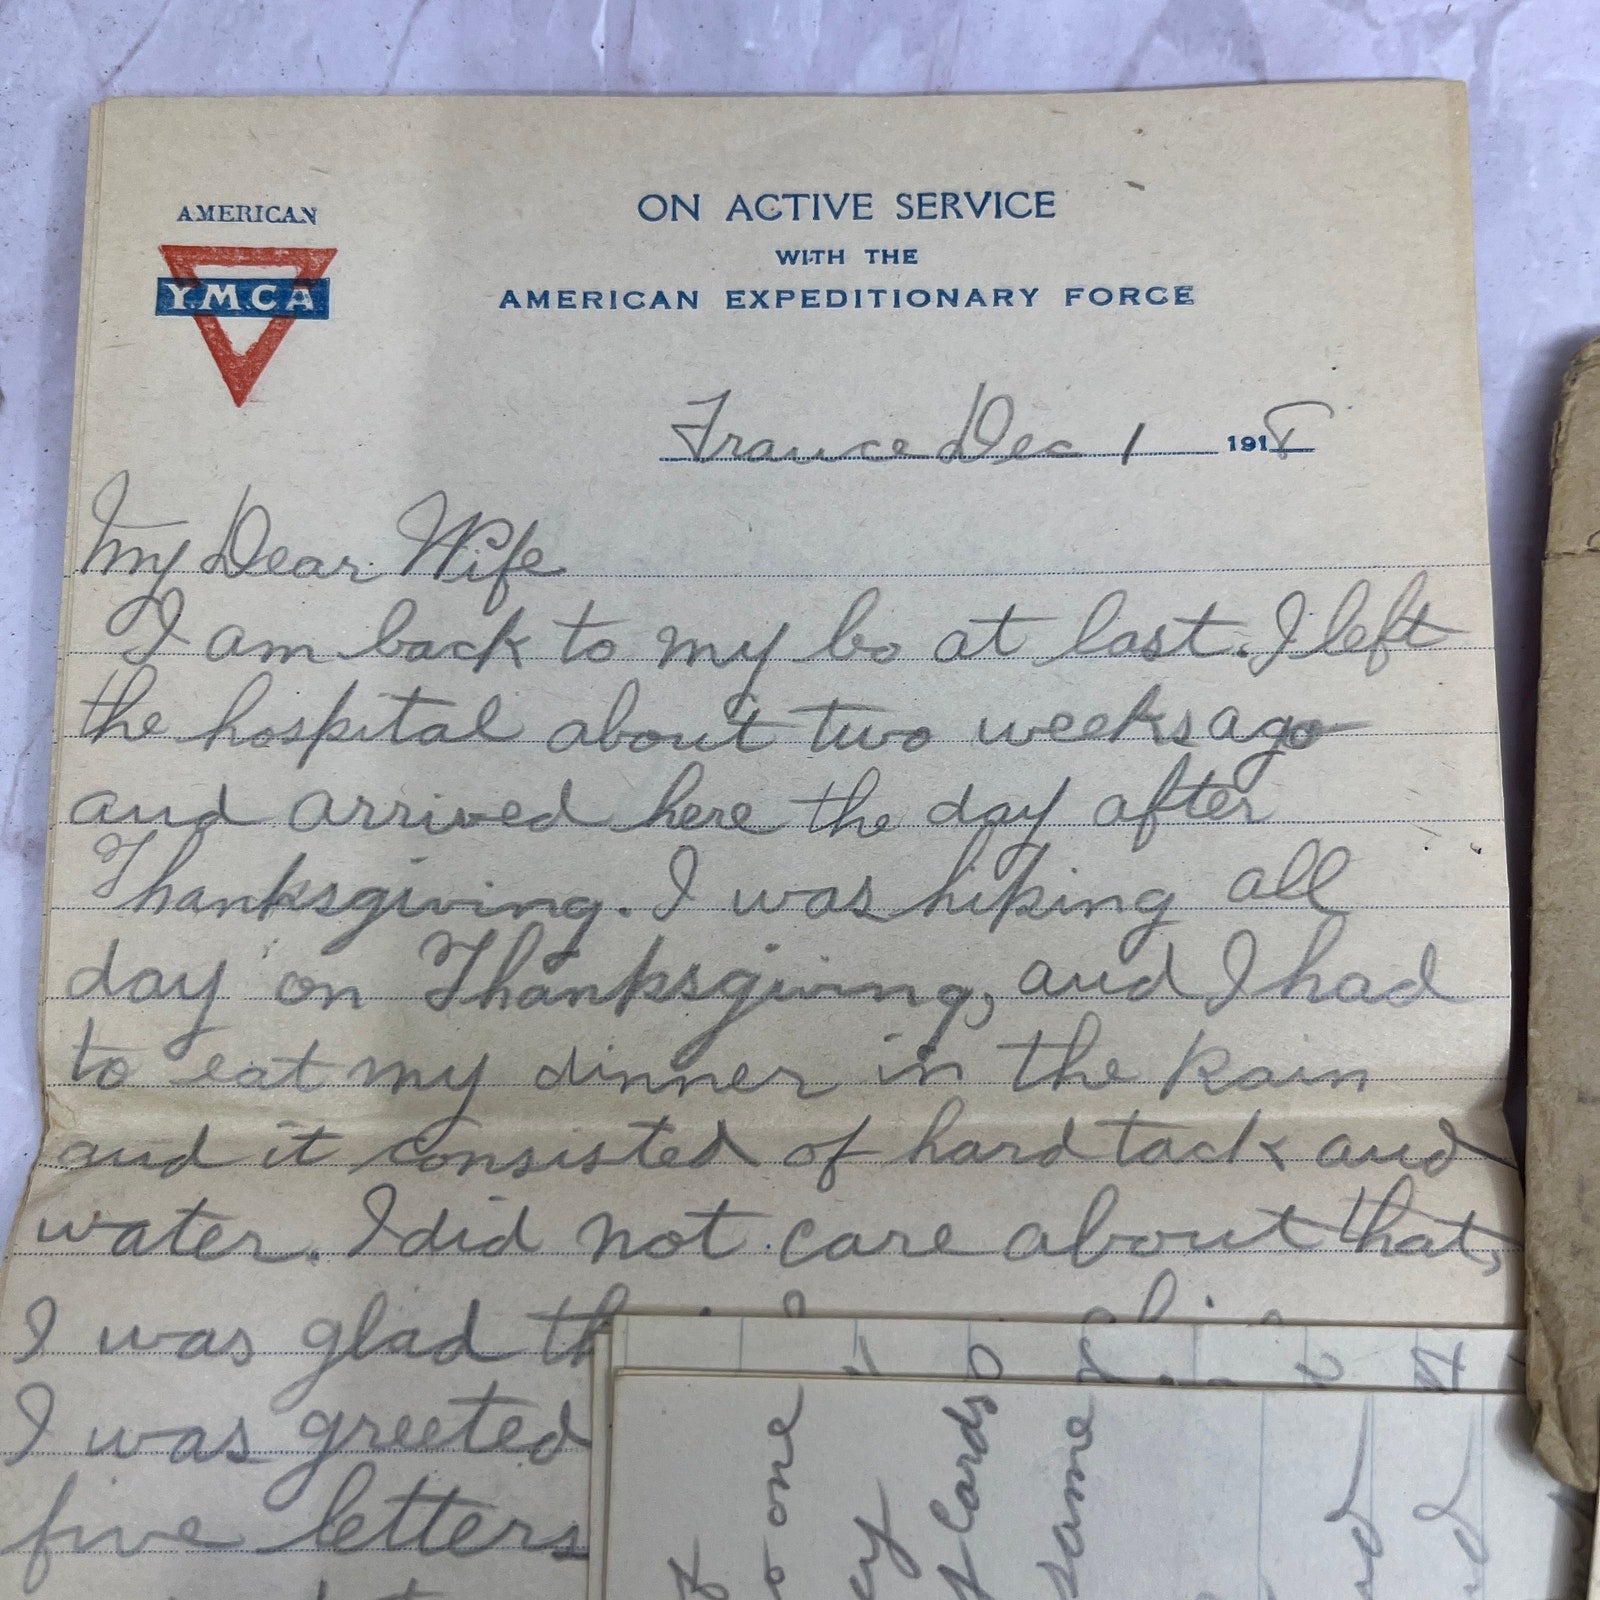 AMERICAN
Y.M.C.A
ON ACTIVE SERVICE
WITH THE
AMERICAN EXPEDITIONARY FORCE
France Dec 1 1918
My Dear Wife
I am back to my co at last. I left
the hospital about two weeks ago
and arrived here the day after
Thanksgiving. I was hiking all
day on Thanksgiving, and I had
to eat my dinner in the Rain
and it consisted of hard tack and
water. I did not care about that,
I was glad
I was greeted
five letters
one
of
Cards
same